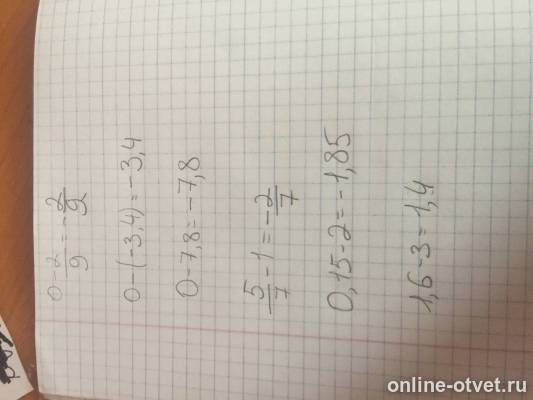 0-2/9=-2/9
0-(-3,4)=-3,4
0-7,8=-7,8
5/7-1=-2/7
0,15-2=-1,85
1,6-3=1,4
online-otvet.ru